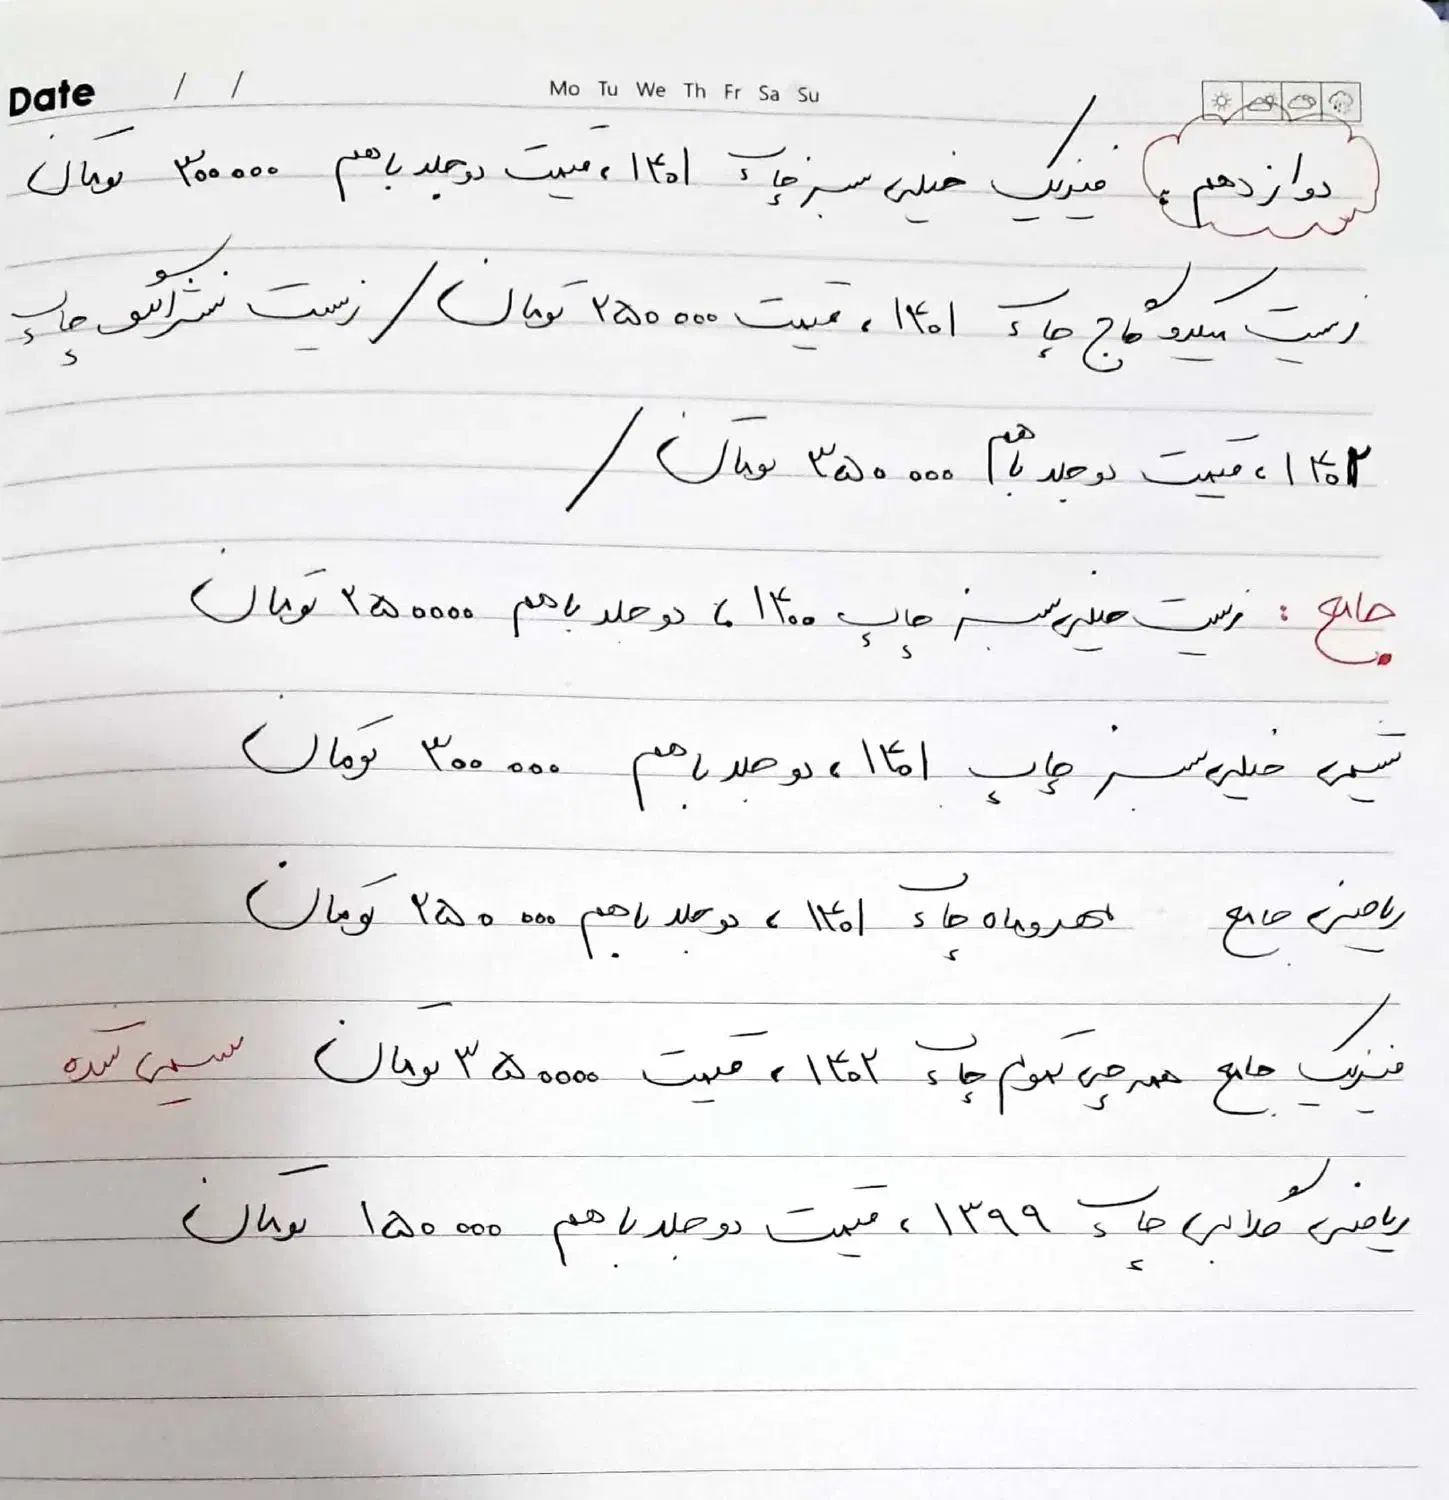 Date / / Mo Tu We Th Fr Sa Su
دوازدهم : فیزیک خیلی سبز چاپ ۱۴۰۱، قیمت دو جلد باهم ۳۰۰۰۰۰ تومان
زیست میکرو گاج چاپ ۱۴۰۱، قیمت ۲۵۰۰۰۰ تومان / زیست نشرالگو چاپ
۱۴۰۲، قیمت دو جلد باهم ۳۵۰۰۰۰ تومان /
جامع : زیست خیلی سبز چاپ ۱۴۰۰، دو جلد باهم ۲۵۰۰۰۰ تومان
شیمی خیلی سبز چاپ ۱۴۰۱، دو جلد باهم ۳۰۰۰۰۰ تومان
ریاضی جامع مهروماه چاپ ۱۴۰۱، دو جلد باهم ۲۵۰۰۰۰ تومان
فیزیک جامع همه چی تموم چاپ ۱۴۰۲، قیمت ۳۵۰۰۰۰ تومان سیمی شده
ریاضی گلابی چاپ ۱۳۹۹، قیمت دو جلد باهم ۱۵۰۰۰۰ تومان